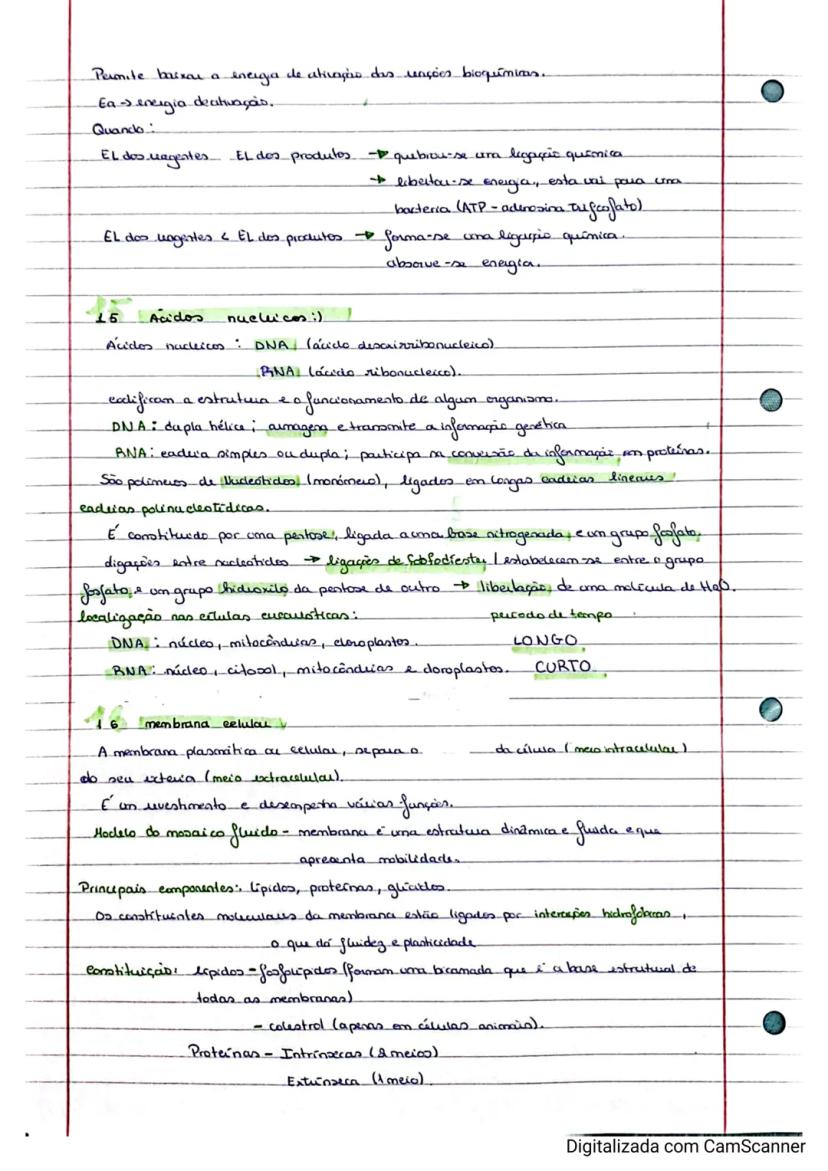 Permite baixar a energia de ativação das reações bioquímicas.
Ea → energia de ativação.
Quando:
EL dos reagentes EL dos produtos → quebrou-se uma ligação química
→ libertou-se energia, esta vai para uma
bacteria (ATP - adenosina trifosfato)
EL dos reagentes < EL dos produtos → forma-se uma ligação química.
absorve-se energia.
1.5 Ácidos nucleicos :)
Ácidos nucleicos : DNA (ácido desoxirribonucleico)
RNA (ácido ribonucleico).
codificam a estrutura e o funcionamento de algum organismo.
DNA : dupla hélice ; armazena e transmite a informação genética
RNA : cadeia simples ou dupla ; participa na conversão da informação em proteínas.
São polímeros de Nucleótidos (monómero), ligados em longas cadeias lineares
cadeias polinucleotídicas.
É constituído por uma pentose, ligada a uma base nitrogenada, e um grupo fosfato,
ligações entre nucleótidos → ligações de fosfodiester / estabelecem-se entre o grupo
fosfato e um grupo hidroxilo da pentose de outro → libertação, de uma molécula de H2O.
localização nas células eucarióticas : período de tempo
DNA : núcleo, mitocôndrias, cloroplastos. LONGO
RNA : núcleo, citosol, mitocôndrias e cloroplastos. CURTO
1.6 membrana celular
A membrana plasmática ou celular, separa o da célula (meio intracelular)
do seu exterior (meio extracelular).
É um revestimento e desempenha várias funções.
Modelo do mosaico fluido - membrana é uma estrutura dinâmica e fluida e que
apresenta mobilidade.
Principais componentes : lípidos, proteínas, glúcidos.
Os constituintes moleculares da membrana estão ligados por interações hidrofóbicas,
o que dá fluidez e plasticidade
constituição : lípidos - fosfolípidos (formam uma bicamada que é a base estrutural de
todas as membranas)
- colestrol (apenas em células animais).
Proteínas - Intrínsecas (2 meios)
Extrínseca (1 meio).
Digitalizada com CamScanner